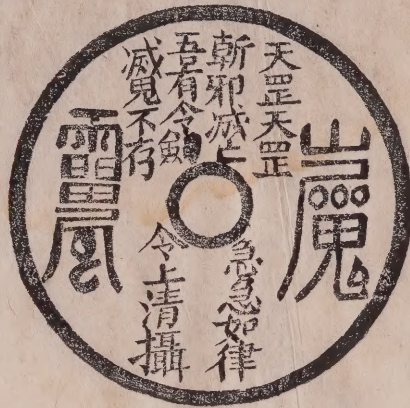 天罡天罡
斬邪滅亡
吾有令劍
滅鬼不存
急急如律
令上清攝